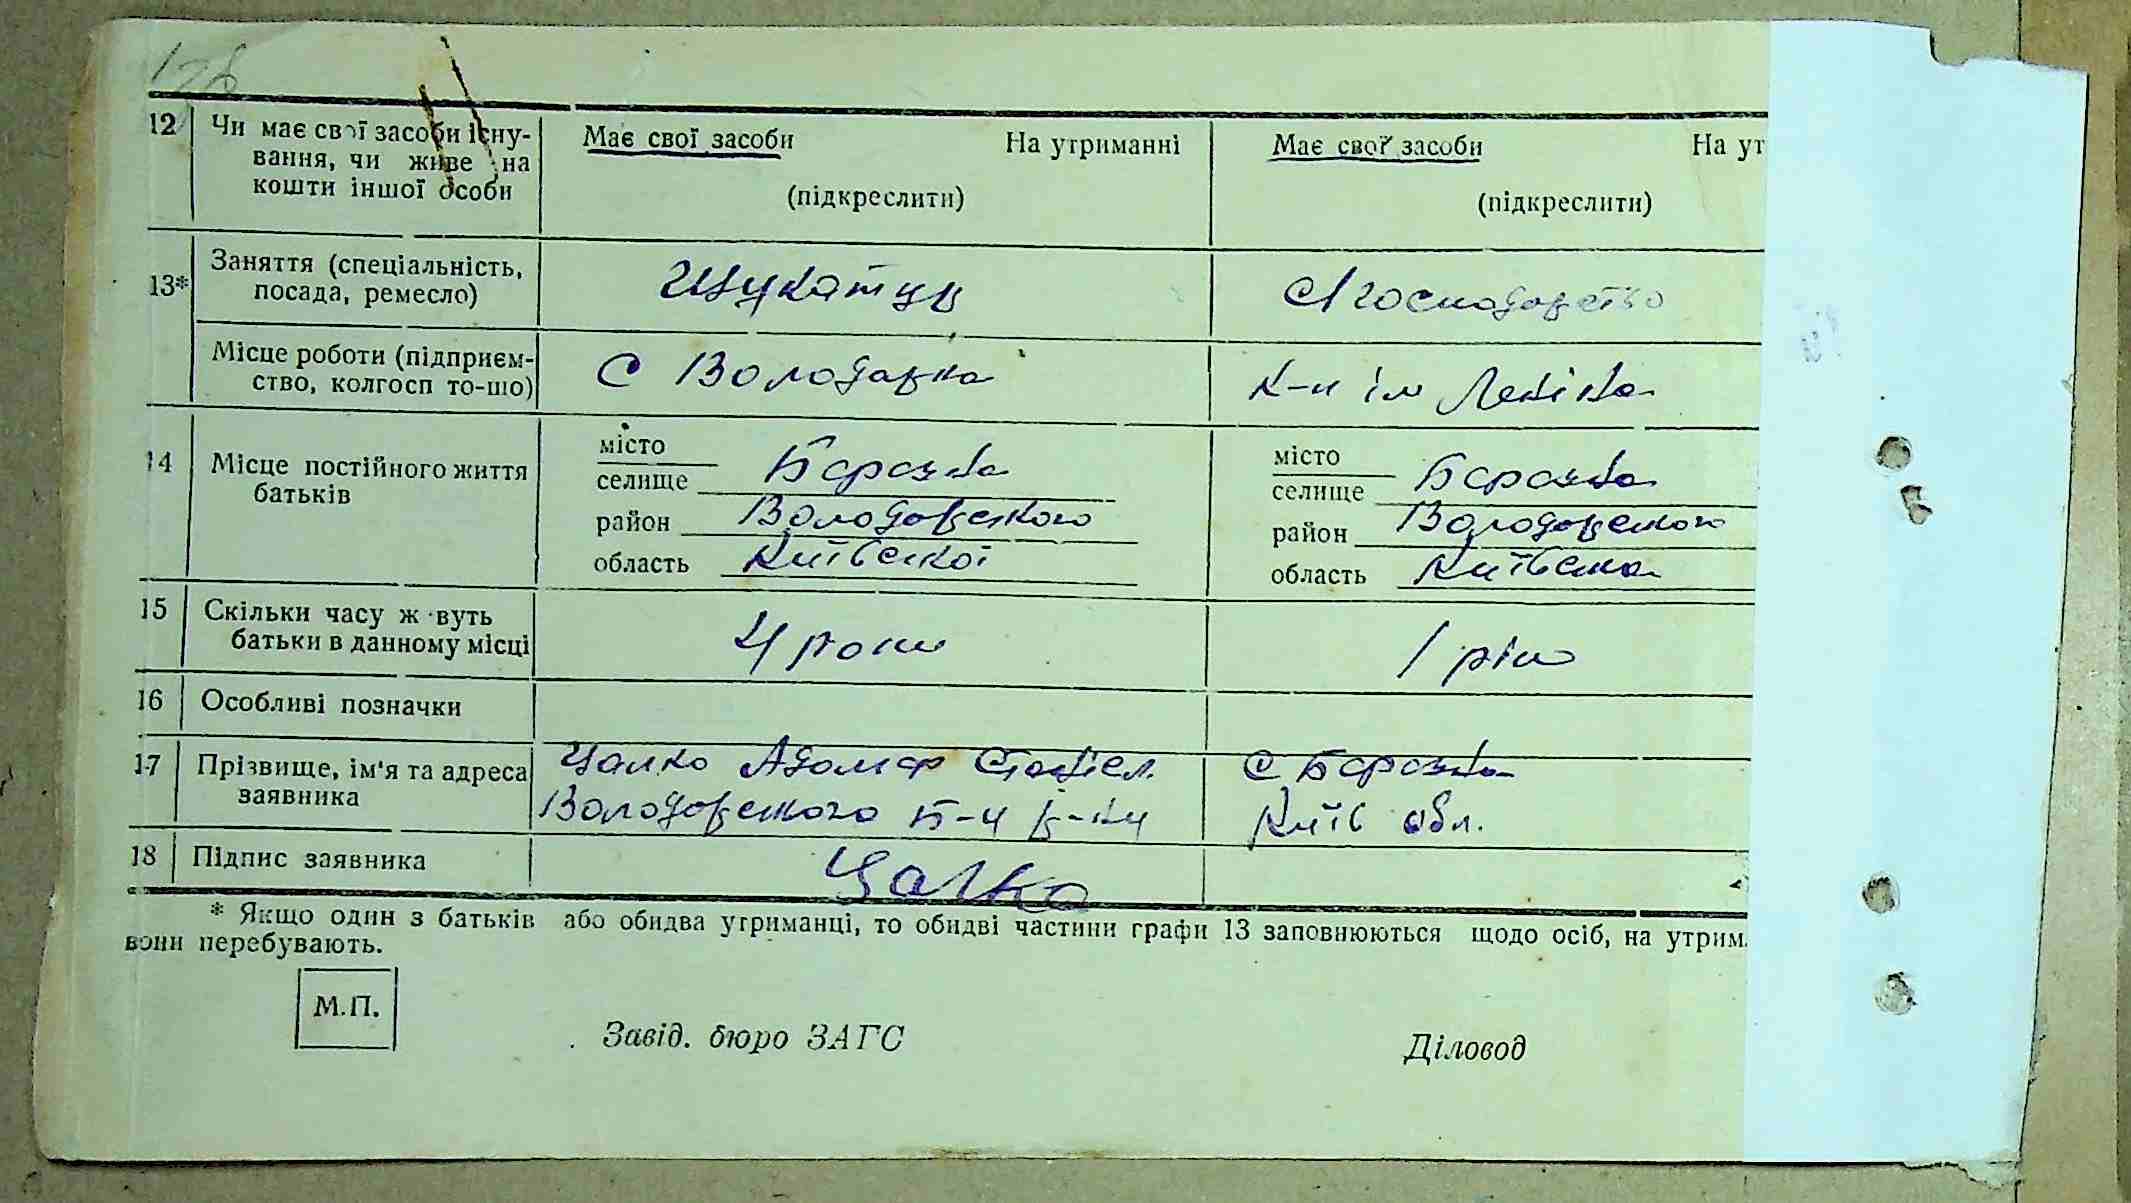 126
12 Чи має свої засоби існу- Має свої засоби На утриманні Має свої засоби На ут
вання, чи живе на
кошти іншої особи (підкреслити) (підкреслити)
13* Заняття (спеціальність, Щукатур С/господарство
посада, ремесло)
Місце роботи (підприєм- С Володарка К-п ім Леніна
ство, колгосп то-що)
14 Місце постійного життя місто місто
батьків селище Березна селище Березна
район Володарського район Володарського
область Київської область Київська
15 Скільки часу ж вуть 4 роки 1 рік
батьки в данному місці
16 Особливі позначки
17 Прізвище, ім'я та адреса Цалко Адольф Станісл. С Березна
заявника Володарського Київ обл.
18 Підпис заявника Цалко
* Якщо один з батьків або обидва утриманці, то обидві частини графи 13 заповнюються щодо осіб, на утрим.
вони перебувають.
М.П.
Завід. бюро ЗАГС Діловод